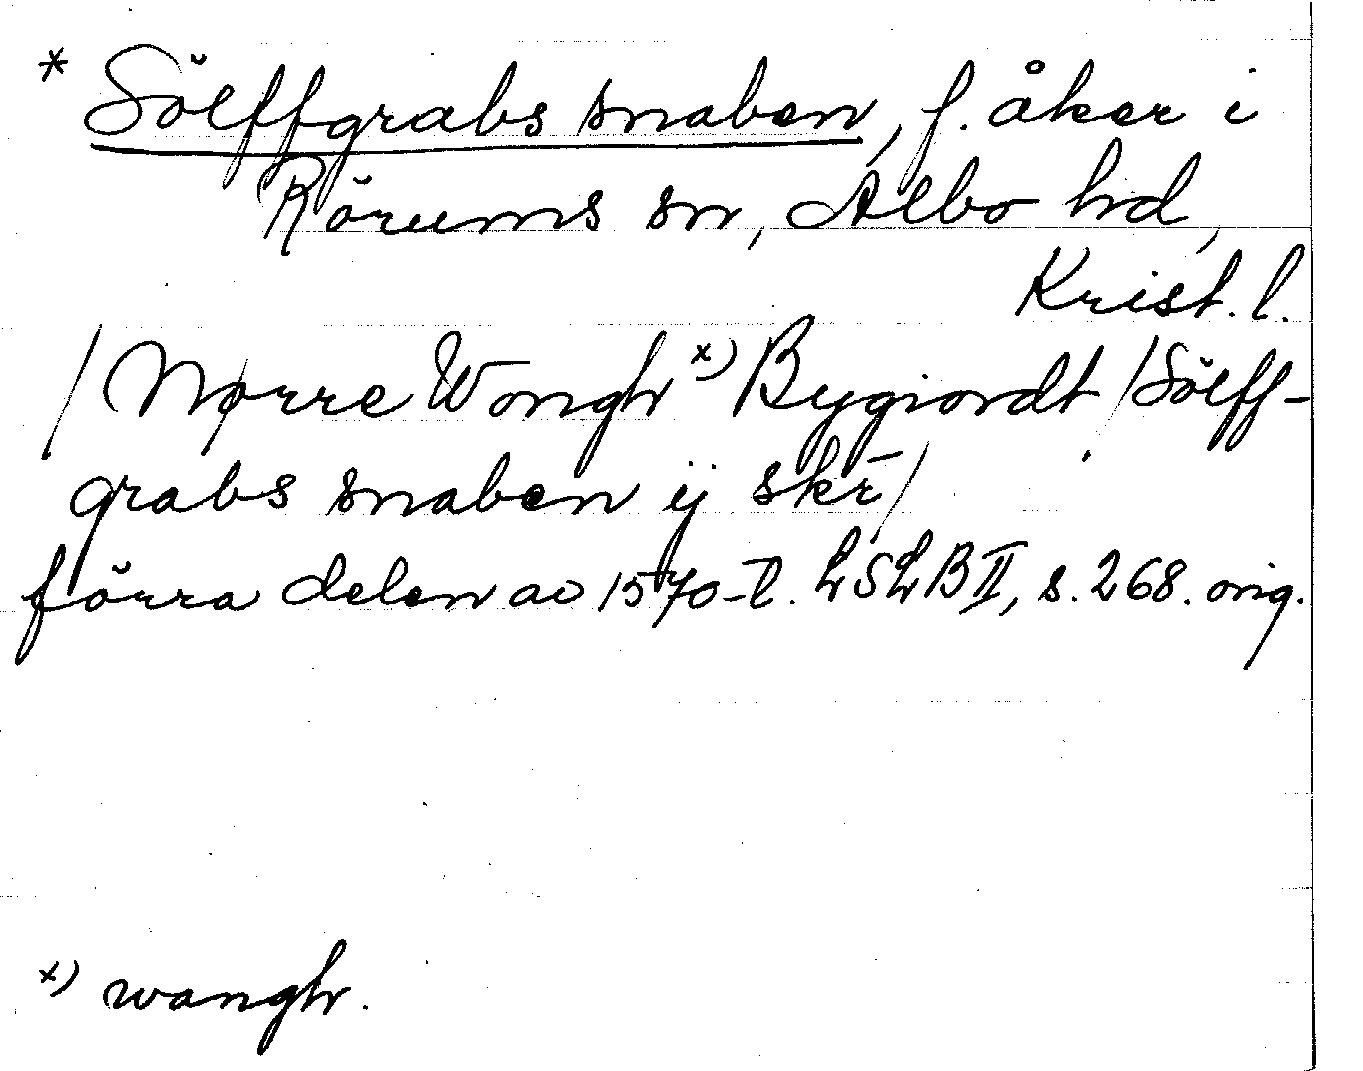 * Sölffgrabs snaben, f. åker i
Rörums sn, Albo hd,
Krist. l.
/Nørre Wongh x) Bygiordt /Sölff-
grabs snaben ij skr̄/
förra delen av 1570-t. LSLB II, s. 268. orig.
x) wangh.